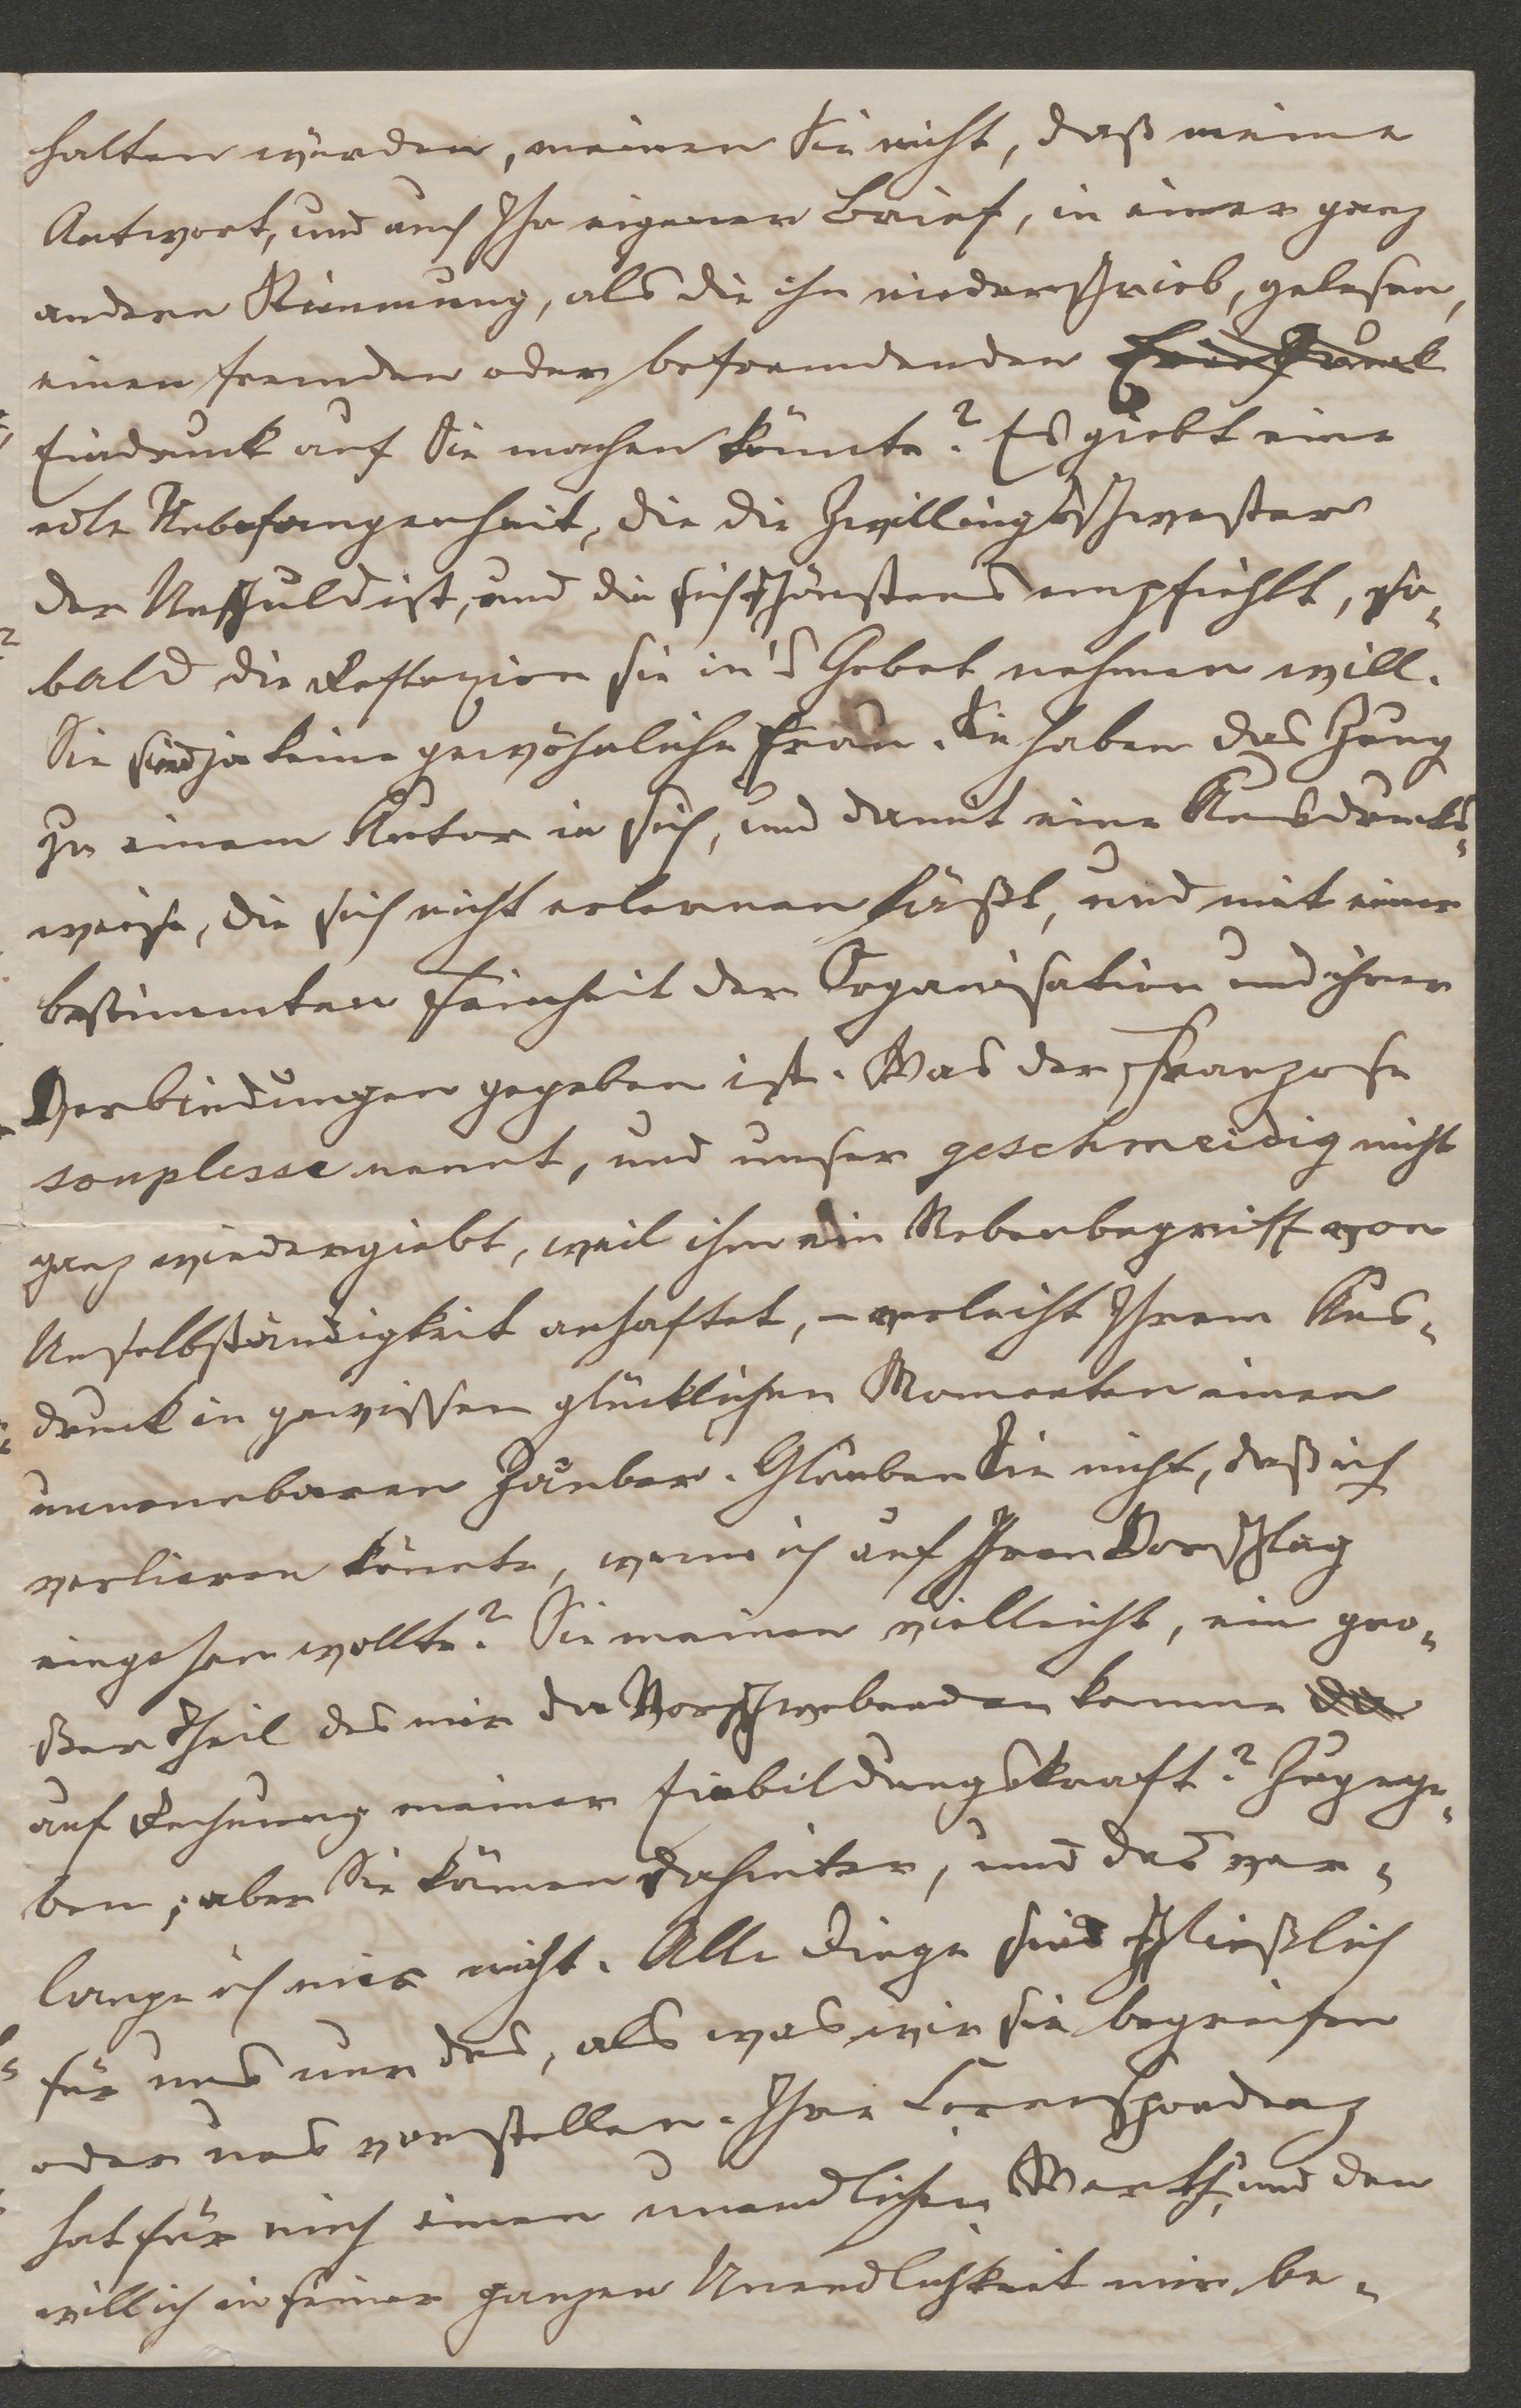 halten würden, meinen Sie nicht, daß meine
Antwort, und auch Ihr eigener Brief, in einer ganz
andern Stimmung, als die ihn niederschrieb, gelesen,
einen fremden oder befremdenden
Eindruck auf Sie machen könnte? Es giebt eine
edle Unbefangenheit, die die Zwillingsschwester
der Unschuld ist, und die sich schönstens empfiehlt, so-
bald die Reflexion sie in's Gebet nehmen will.
Sie sind ja keine gewöhnliche Frau. Sie haben das Zeug
zu einem Autor in sich, und damit eine Ausdrucks-
weise, die sich nicht erlernen läßt, und mit einer
bestimmten Feinheit der Organisation und ihrer
Verbindungen gegeben ist. Was der Franzose
souplesse nennt, und unser geschmeidig nicht
ganz wiedergiebt, weil ihm ein Nebenbegriff von
Unselbständigkeit anhaftet, – verleiht Ihrem Aus-
druck in gewissen glücklichen Momenten einen
unnennbaren Zauber. Glauben Sie nicht, daß ich
verlieren könnte, wenn ich auf Ihren Vorschlag
eingehen wollte? Sie meinen vielleicht, ein gro-
ßer Theil des mir da Vorschwebenden komme
auf Rechnung meiner Einbildungskraft? Zugege-
ben; aber Sie kämen dahinter, und das ver-
lange ich mir nicht. Alle Dinge sind schließlich
für uns nur das, als was wir sie begreifen
oder uns vorstellen. Ihre Correspondenz
hat für mich einen unendlichen Werth, und den
will ich in seiner ganzen Unendlichkeit mir be-